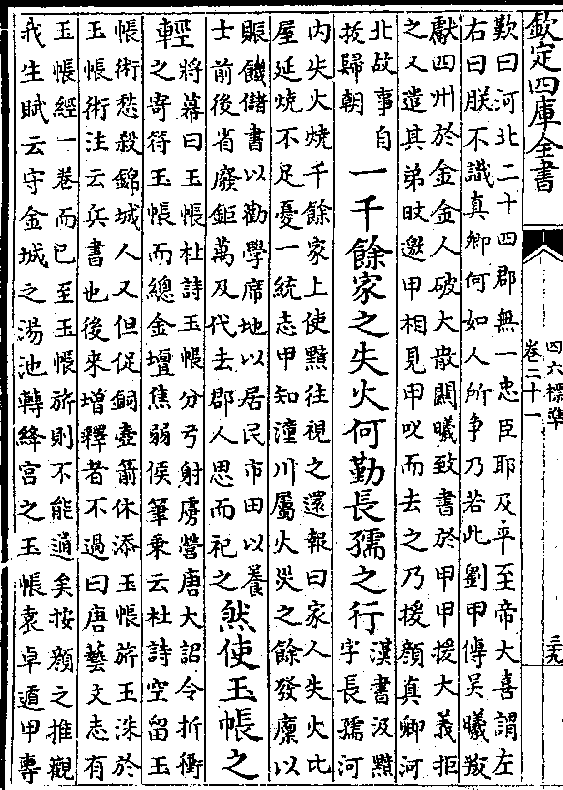 欽定四庫全書
四六標準
卷二十一
三九
歎曰河北二十四郡無一忠臣耶及平至帝大喜謂左
右曰朕不識真卿何如人所爭乃若此劉甲傳吳曦叛
獻四州於金金人破大散關曦致書於甲甲援大義拒
之又遣其弟旼邀甲相見甲叱而去之乃援顔真卿河
北故事自
拔歸朝
一千餘家之失火何勤長孺之行
漢書汲黯
字長孺河
内失火燒千餘家上使黯往視之還報曰家人失火比
屋延燒不足憂一統志甲知潼川屬火災之餘發廩以
賑饑儲書以勸學席地以居民市田以養
士前後省廢鉅萬及代去郡人思而祀之
然使玉帳之
輕
將幕曰玉帳杜詩玉帳分弓射虜營唐大詔令折衝
之寄符玉帳而總金壇焦弱侯筆乘云杜詩空留玉
帳術愁殺錦城人又但促銅壺箭休添玉帳旂王洙於
玉帳術注云兵書也後来增釋者不過曰唐藝文志有
玉帳經一卷而已至玉帳旂則不能通矣按顔之推觀
我生賦云守金城之湯池轉絳宮之玉帳袁卓遁甲專